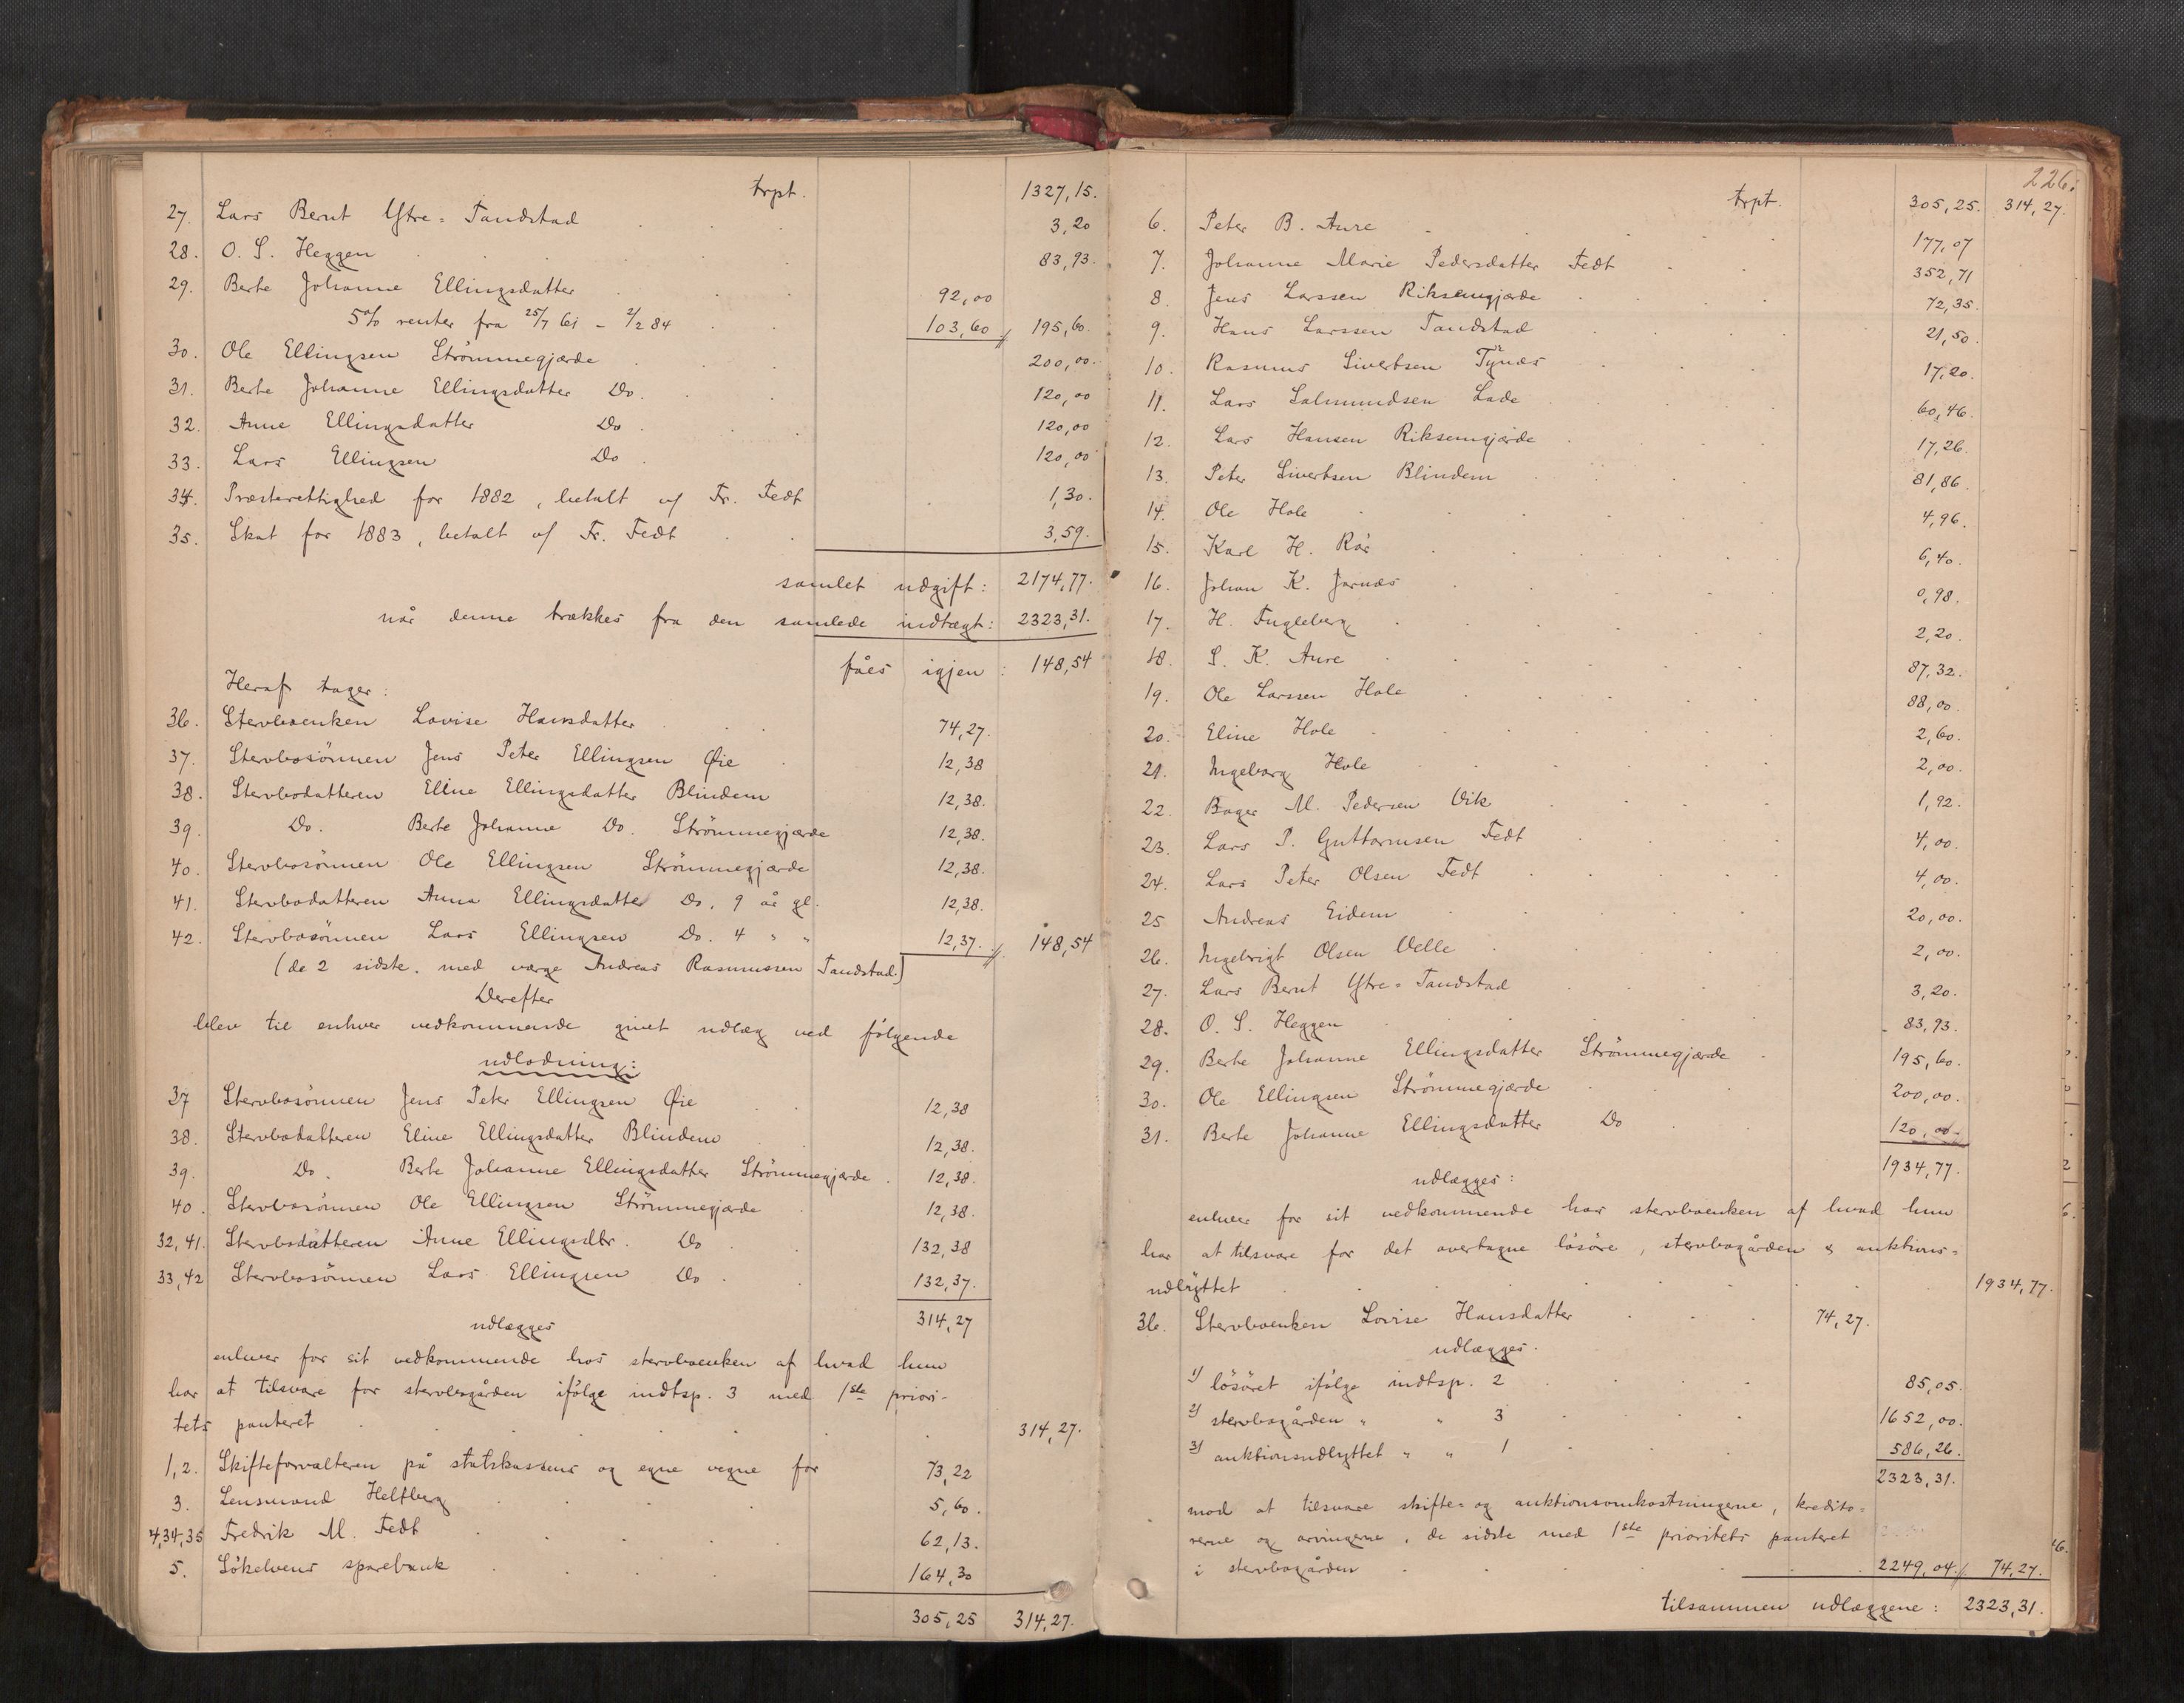 trpt. 1327,15.
27. Lars Bernt Ytre=Tandstad 3,20
28. O. S. Heggen 83,93.
29. Berte Johanne Ellingsdatter 92,00
5% renter fra 25/7 61 - 2/2 84 103,60 // 195,60.
30. Ole Ellingsen Strömmegjærde 200,00.
31. Berte Johanne Ellingsdatter Do. 120,00
32. Anne Ellingsdatter Do 120,00
33. Lars Ellingsen Do 120,00
34. Præsterettighed for 1882, betalt af Fr. Fedt 1,30.
35. Skat for 1883, betalt af Fr. Fedt 3,59.
samlet udgift: 2174,77.
når denne trækkes fra den samlede indtægt: 2323,31.
fåes igjen: 148,54
Heraf tager:
36. Stervboenken Lovise Hansdatter 74,27.
37. Stervbosönnen Jens Peter Ellingsen Øie 12,38
38. Stervbodatteren Eline Ellingsdatter Blindem 12,38.
39. Do. Berte Johanne Do. Strömmegjærde 12,38.
40. Stervbosönnen Ole Ellingsen Strömmegjærde 12,38.
41. Stervbodatteren Anna Ellingsdatter Do, 9 år gl. 12,38.
42. Stervbosönnen Lars Ellingsen Do. 4 " " 12,37. // 148,54
(de 2 sidste med værge Andreas Rasmussen Tandstad.)
Derefter
blev til enhver vedkommende givet udlæg ved følgende
udlodning:
37 Stervbosönnen Jens Peter Ellingsen Øie 12,38
38. Stervbodatteren Eline Ellingsdatter Blindem 12,38.
39. Do. Berte Johanne Ellingsdatter Strömmegjærde 12,38.
40. Stervbosönnen Ole Ellingsen Strömmegjærde 12,38.
32, 41. Stervbodatteren Anne Ellingsdtr. Do 132,38
33, 42 Stervbosönnen Lars Ellingsen Do 132,37.
314,27
udlægges
enhver for sit vedkommende hos stervboenken af hvad hun
har at tilsvare for stervbogården ifölge indtsp. 3 med 1ste priori-
tets panteret 314,27.
1, 2. Skifteforvalteren på statskassens og egne vegne for 73,22
3. Lensmand Helfberg 5,60.
4,34,35 Fredrik M. Fedt 62,13.
5. Sökelvens sparebank 164,30
305,25 314,27.
226.
trpt. 305,25. 314,27.
6. Peter B. Aure 177,07
7. Johanne Marie Pedersdatter Fedt 352,71
8. Jens Larssen Riksemgjærde 72,35.
9. Hans Larssen Tandstad 21,50.
10. Rasmus Sivertsen Tynes 17,20.
11. Lars Salmundsen Lade 60,46.
12. Lars Hansen Riksemgjærde 17,26.
13. Peter Sivertsen Blindem 81,86.
14. Ole Hole 4,96.
15. Karl H. Rös 6,40.
16. Johan K. Jarnæs 0,98.
17. H. Fugleberg 2,20.
18. S. K. Aure 87,32.
19. Ole Larssen Hole 88,00.
20. Eline Hole 2,60.
21. Ingeborg Hole 2,00.
22. Bager M. Pedersen Vik 1,92.
23. Lars P. Guttormsen Fedt 4,00.
24. Lars Peter Olsen Fedt 4,00.
25 Andreas Eidem 20,00.
26. Ingebrigt Olsen Velle 2,00.
27. Lars Bernt Ytre=Tandstad 3,20.
28. O. S. Heggen 83,93.
29. Berte Johanne Ellingsdatter Strömmegjærde 195,60.
30. Ole Ellingsen Strömmegjærde 200,00.
31. Berte Johanne Ellingsdatter Do 120,00.
1934,77.
udlægges:
enhver for sit vedkommende hos stervboenken af hvad hun
har at tilsvare for det overtagne lösöre, stervbogården & auktions=
udbyttet 1934,77.
36. Stervboenken Lovise Hansdatter 74,27.
udlægges.
1) lösöret ifölge indtsp. 2 85,05.
2) stervbogården " " 3 1652,00.
3) auktionsudbyttet " " 1 586,26.
2323,31.
mod at tilsvare skifte= og auktionsomkostningerne, kredito=
rerne og arvingerne, de sidste med 1ste prioritets panteret
i stervbogården 2249,04. // 74,27.
tilsammen udlæggene: 2323,31.